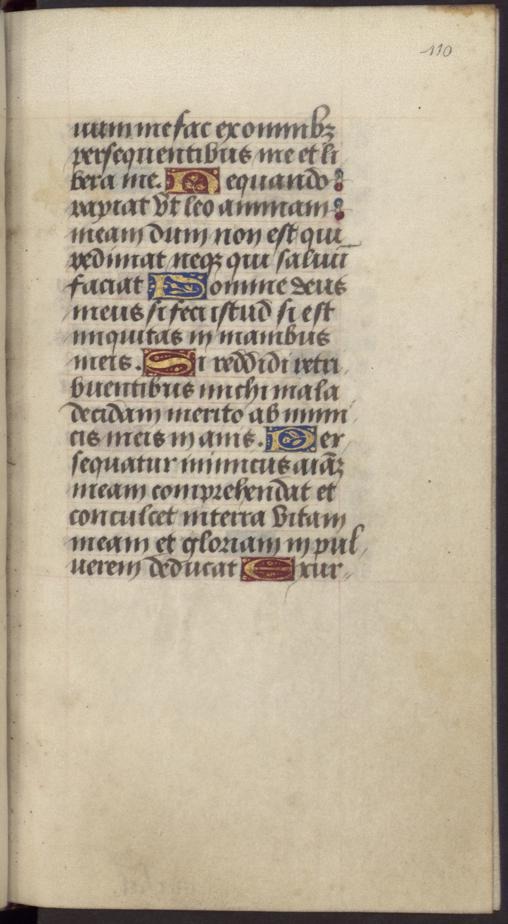 110
uum me fac ex omnibꝫ
persequentibus me et li
bera me. Nequando
rapiat vt leo animam
meam dum non est qui
redimat neqꝫ qui saluū
faciat Domine deus
meus si feci istud si est
iniquitas in manibus
meis. Si reddidi retri
buentibus michi mala
decidam merito ab inimi
cis meis inanis. Per
sequatur inimicus aīaꝫ
meam comprehendat et
conculcet in terra vitam
meam et gloriam in pul
uerem deducat Exur